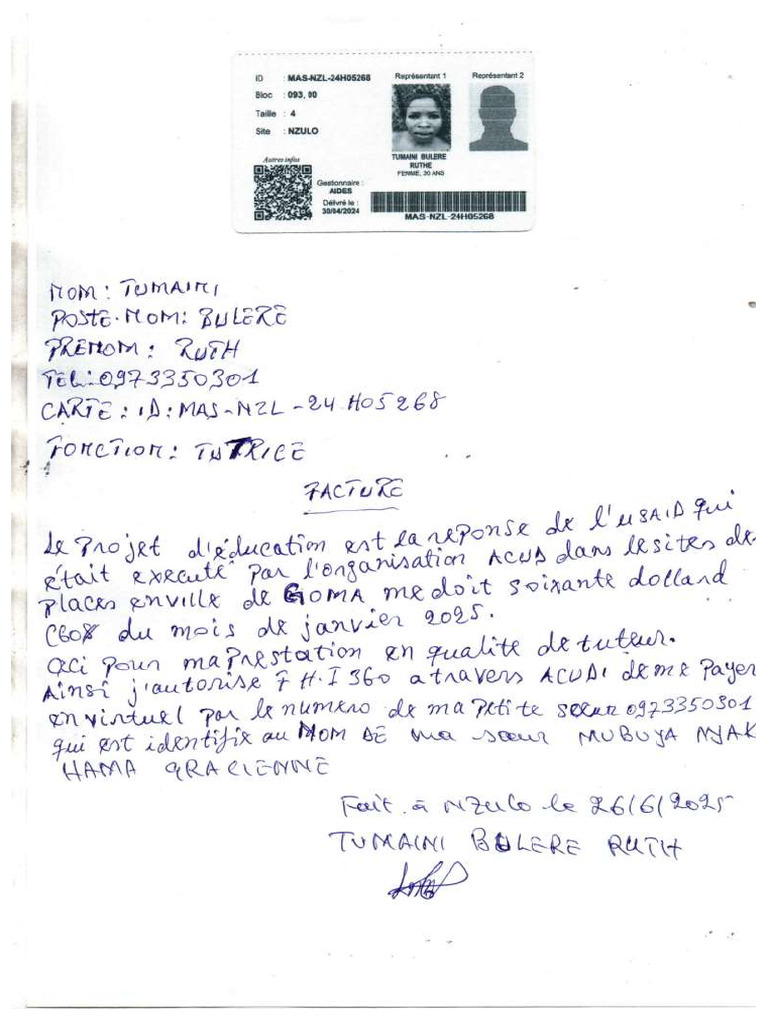 ID : MAS-NZL-24H05268
Bloc : 093, 00
Taille : 4
Site : NZULO
Représentant 1
Représentant 2
TUMAINI BULERE
RUTHE
FEMME, 30 ANS
Autres infos
Gestionnaire :
AIDES
Délivré le :
30/04/2024
MAS-NZL-24H05268
NOM : TUMAINI
POSTE-NOM: BULERE
PRENOM : RUTH
Tél:0973350301
CARTE : ID: MAS-NZL-24 H05268
FONCTION: TUTRICE
FACTURE
Le Projet d'éducation est la réponse de l'USAID qui
était executé par l'organisation ACUD dans le sites de-
places en ville de GOMA me doit soixante dolland
(60$ du mois de janvier 2025.
Ceci pour ma prestation en qualité de tuteur.
Ainsi j'autorise F H.I 360 a travers ACUDI de me Payer
en virtuel par le numero de ma petite sœur 0973350301
qui est identifié au NOM DE ma sœur MUBUYA NYAK
HAMA GRACIENNE
Fait à NZulo le 26/6/2025
TUMAINI BULERE RUTH